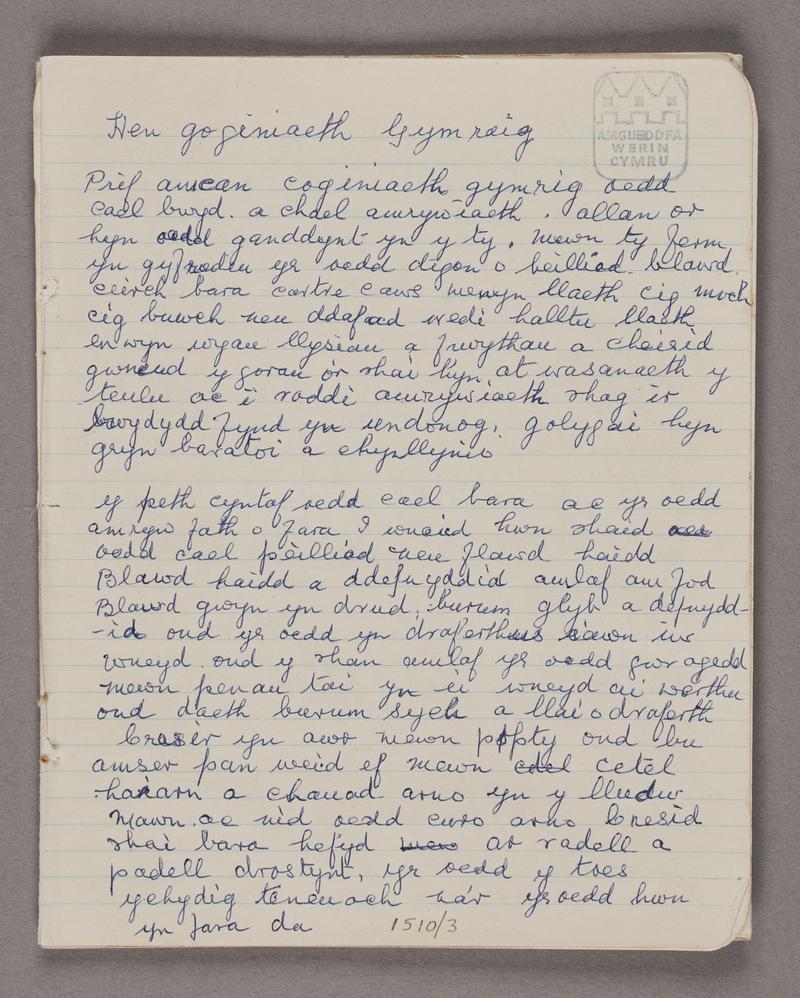 Hen goginiaeth Gymraig
AMGUEDDFA
WERIN
CYMRU
Prif amcan coginiaeth gymrig oedd
cael bwyd. a chael amrywiaeth. allan or
hyn oedd ganddynt yn y ty. mewn ty ferm
yn gyfredin yr oedd digon o beilliad. blawd
ceirch bara cartre caws menyn llaeth cig moch
cig buwch neu ddafad wedi halltu llaeth
enwyn wyau llysiau a frwythau a cheisid
gwneud y gorau o'r rhai hyn at wasanaeth y
teulu ac i roddi amrywiaeth rhag ir
bwydydd fynd yn undonog, golygai hyn
gryn baratoi a chynllynio
y peth cyntaf oedd cael bara ac yr oedd
amryw fath o fara I wneud hwn rhaid
oedd cael peilliad neu flawd haidd
Blawd haidd a ddefnyddid amlaf am fod
Blawd gwyn yn drud, burum glyb a defnydd-
-id ond yr oedd yn draferthus iawn iw
wneyd. ond y rhan amlaf yr oedd gwragedd
mewn penau tai yn ei wneyd ai werthu
ond daeth burum sych a llai o draferth
Craser yn awr mewn popty ond bu
amser pan weid ef mewn cetel
haiarn a chauad arno yn y lludw
mawn. ac nid oedd curo arno Cresid
rhai bara hefyd ar radell a
padell drostynt, yr oedd y toes
ychydig teneuach na'r yr oedd hwn
yn fara da
1510/3